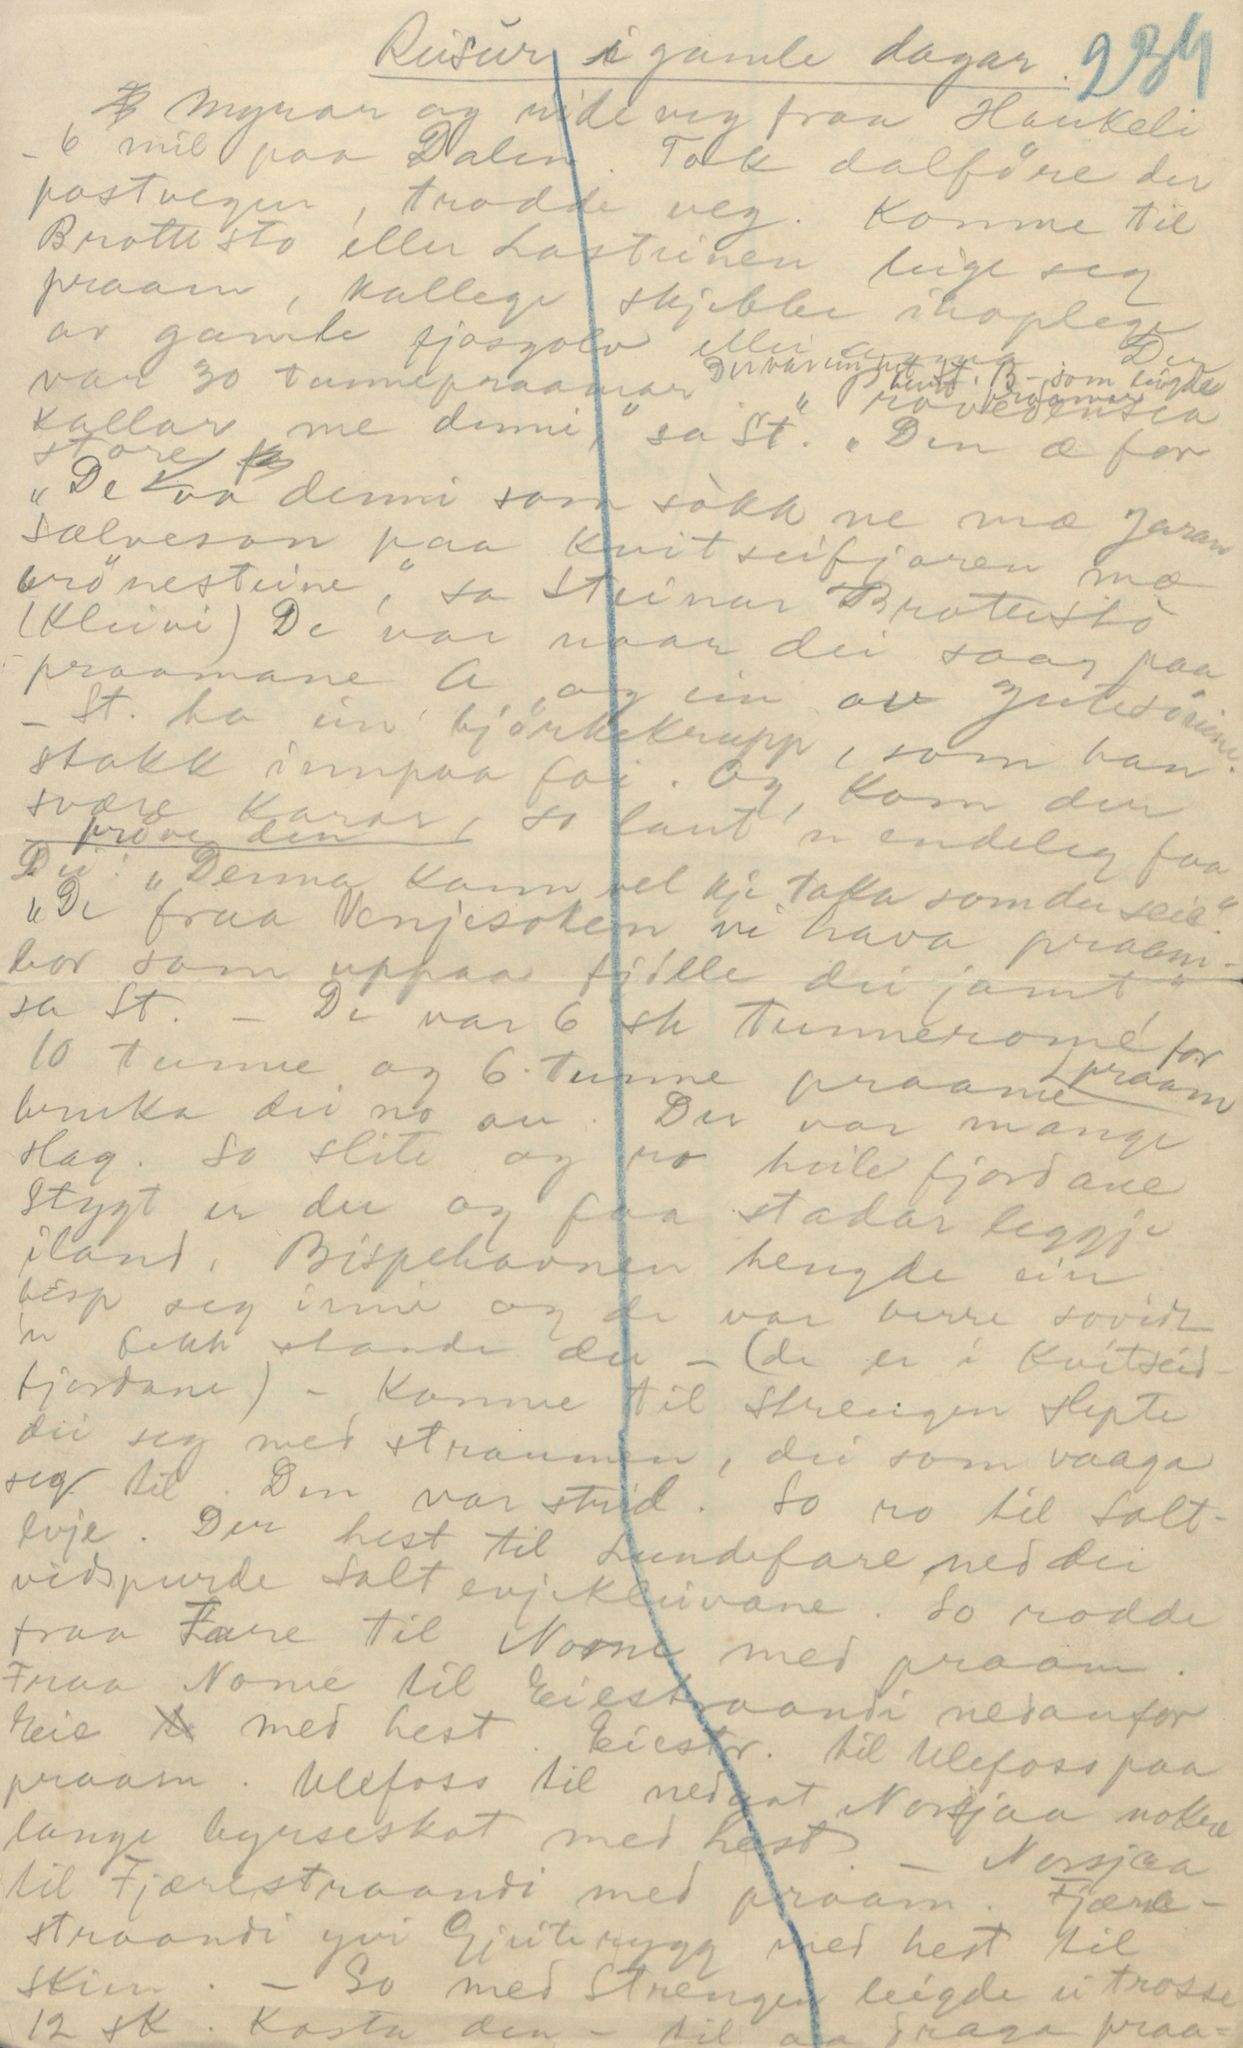 Reisur i gamle dagar. 234
Myrar og rideveg fraa Haukeli
- 6 mil paa Dalen. Tok dalföre der
postvegen, trødde veg. Komme til
Brottestö eller Lasteinen leige seg
praam,
av gamle fjosgolv eller Der
var 30 tunnepraamar Der var ein St. B- som leigde
burt praamar
kallar me denni," sa St. "Den æ for
store
"De va denni som sökk ne mæ Jaran
Sælveson paa Kvitseifjoren mæ
brönesteine," sa Steinar Brottestö
(Kleivi) De var naar dei saag paa
praamane A og ein av
- St. ha ein björkekrupp, som han
stakk innpaa foi. Og, kom der
svære karar, so laut 'n endeleg faa
pröve den
Dei: "Denna kann vel kje taka som du seie."
"De fraa Venjesoken vi hava praam-
bor som uppaa fjille dei jamt"
sa St. - De var 6 sk tunneromé for
10 tunne og 6 tunne praame praam
bruka dei no au. Der var mange
slag. So slite og ro heile fjordane
Stygt er der og faa stadar leggje
iland. Bispehavnen hengde ein
bisp seg inni og de var berre sovidt
'n fekk stande der - (de er i Kvitseid-
fjordane) - Komme til Strengen slepte
dei seg med straumen, dei som vaaga
seg til. Den var strid. So ro til Salt-
evje. Der hest til Lundefare ned dei
vidspurde Saltevjekleivane. So rodde
fraa Fare til Nome med praam.
Fraa Nome til Eiestraandi nedanfor
Eie med hest. Eiestr. til Ulefoss paa
praam. Ulefoss til nedgot Norsjaa nokre
lange byrseskot med hest. - Norsjaa
til Fjærestraandi med praam. Fjære-
straandi yvi Gjeiterygg med hest til
Skien. - So med Strengen leigde ei trosse
12 sk. Kosta den - til aa draga praa-